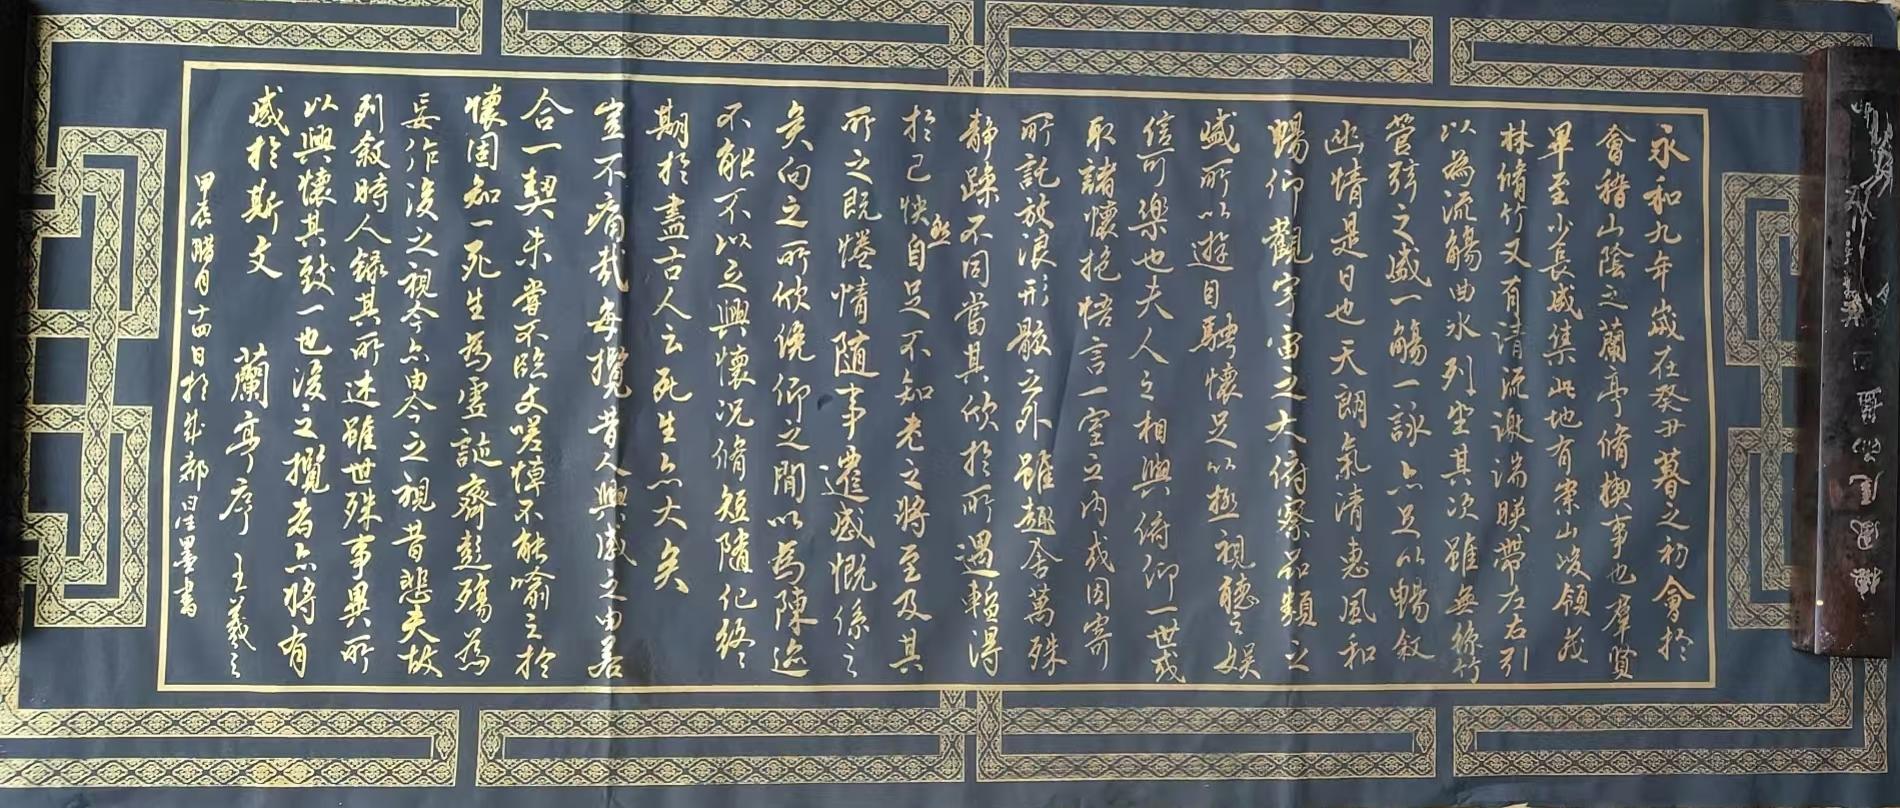 永和九年歲在癸丑暮之初會於
會稽山陰之蘭亭脩禊事也羣賢
畢至少長咸集此地有崇山峻領茂
林脩竹又有清流激湍暎帶左右引
以為流觴曲水列坐其次雖無絲竹
管弦之盛一觴一詠亦足以暢敘
幽情是日也天朗氣清惠風和
暢仰觀宇宙之大俯察品類之
盛所以遊目騁懷足以極視聽之娛
信可樂也夫人之相與俯仰一世或
取諸懷抱悟言一室之內或因寄
所託放浪形骸之外雖趣舍萬殊
靜躁不同當其欣於所遇輒得
於己快然自足不知老之將至及其
所之既惓情隨事遷感慨係之
矣向之所欣俛仰之間以為陳迹
不能不以之興懷況脩短隨化終
期於盡古人云死生亦大矣
豈不痛哉每攬昔人興感之由若
合一契未嘗不臨文嗟悼不能喻之於
懷固知一死生為虛誕齊彭殤為
妄作後之視今亦由今之視昔悲夫故
列敘時人錄其所述雖世殊事異所
以興懷其致一也後之攬者亦將有
感於斯文
蘭亭序 王羲之
甲辰臘月十四日於成都星墨書